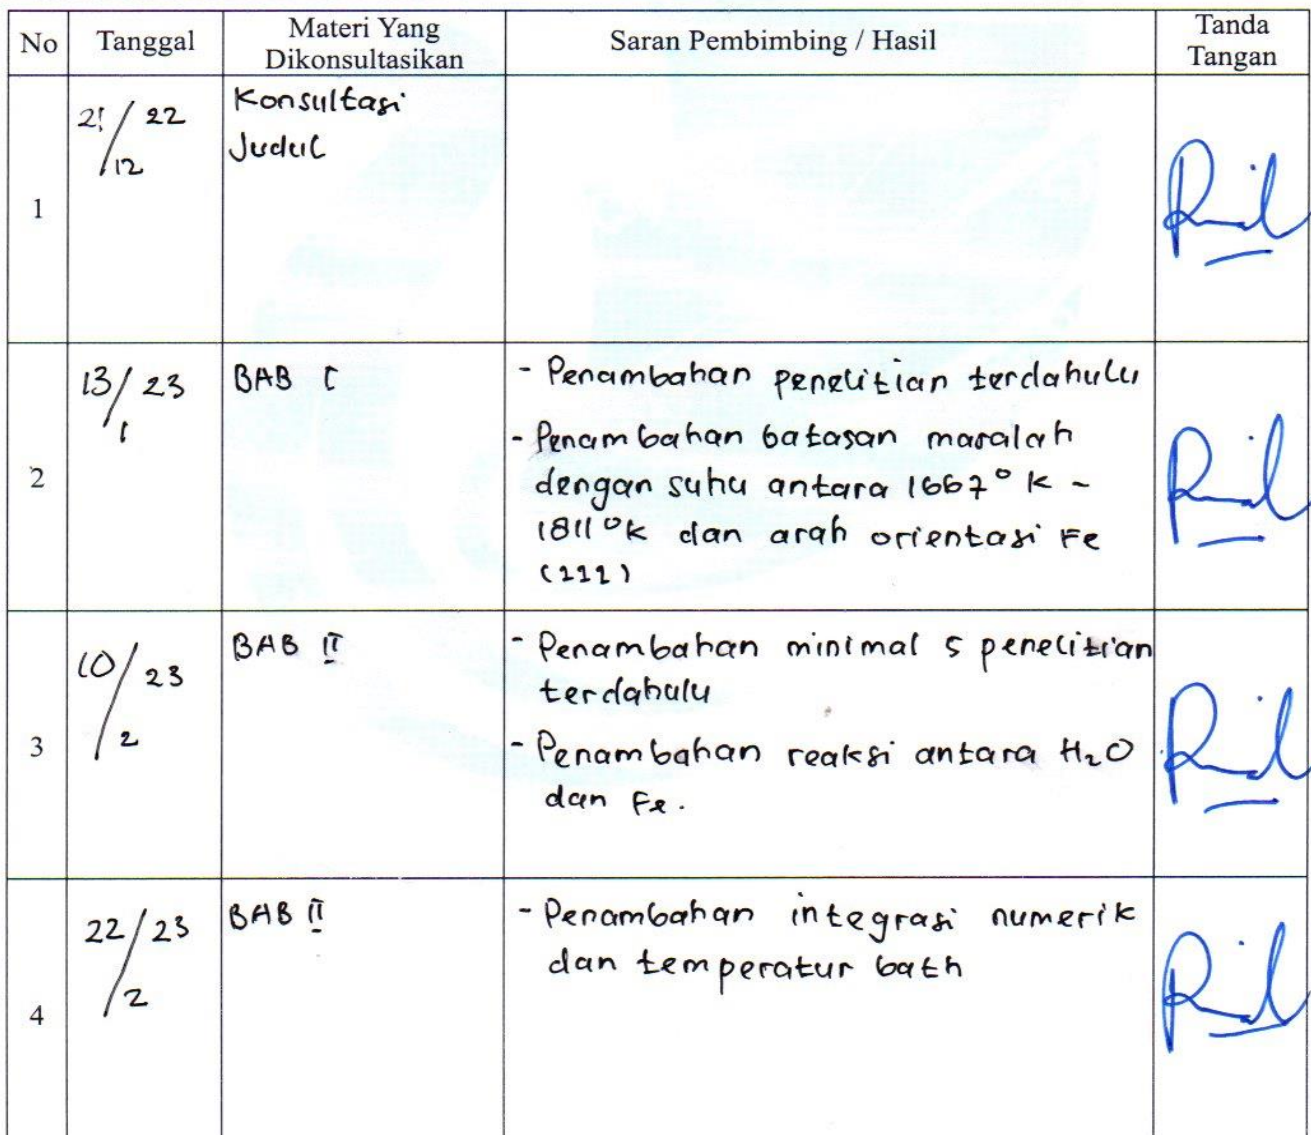 No Tanggal Materi Yang Dikonsultasikan Saran Pembimbing / Hasil Tanda Tangan
1
21/12 22
Konsultasi
Judul
2
13/1 23
BAB I
- Penambahan penelitian terdahulu
- Penambahan batasan masalah
dengan suhu antara 1667° K -
1811°K dan arah orientasi Fe
(111)
3
10/2 23
BAB II
- Penambahan minimal 5 penelitian
terdahulu
- Penambahan reaksi antara H₂O
dan Fe.
4
22/2 23
BAB II
- Penambahan integrasi numerik
dan temperatur bath